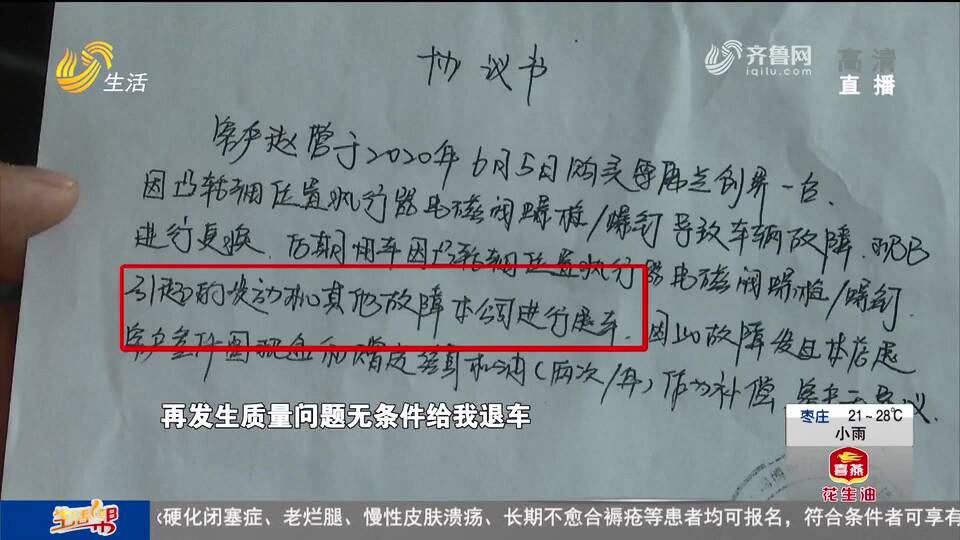 生活
齐鲁网
iqilu.com
高清
直播
协议书
客户赵营于2020年6月5日购买 一台.
因凸轮轴位置执行器电磁阀螺栓/螺钉导致车辆故障.
进行更换. 后期用车因凸轮轴位置执行器电磁阀螺栓/螺钉
引起的发动机其他故障本公司进行退车. 因此故障发 本店
客户 赠送 机油(两次/年)作为补偿. 客户 议.
再发生质量问题无条件给我退车
枣庄 21~28℃
小雨
喜燕
花生油
生活帮
硬化闭塞症、老烂腿、慢性皮肤溃疡、长期不愈合褥疮等患者均可报名，符合条件者可享有